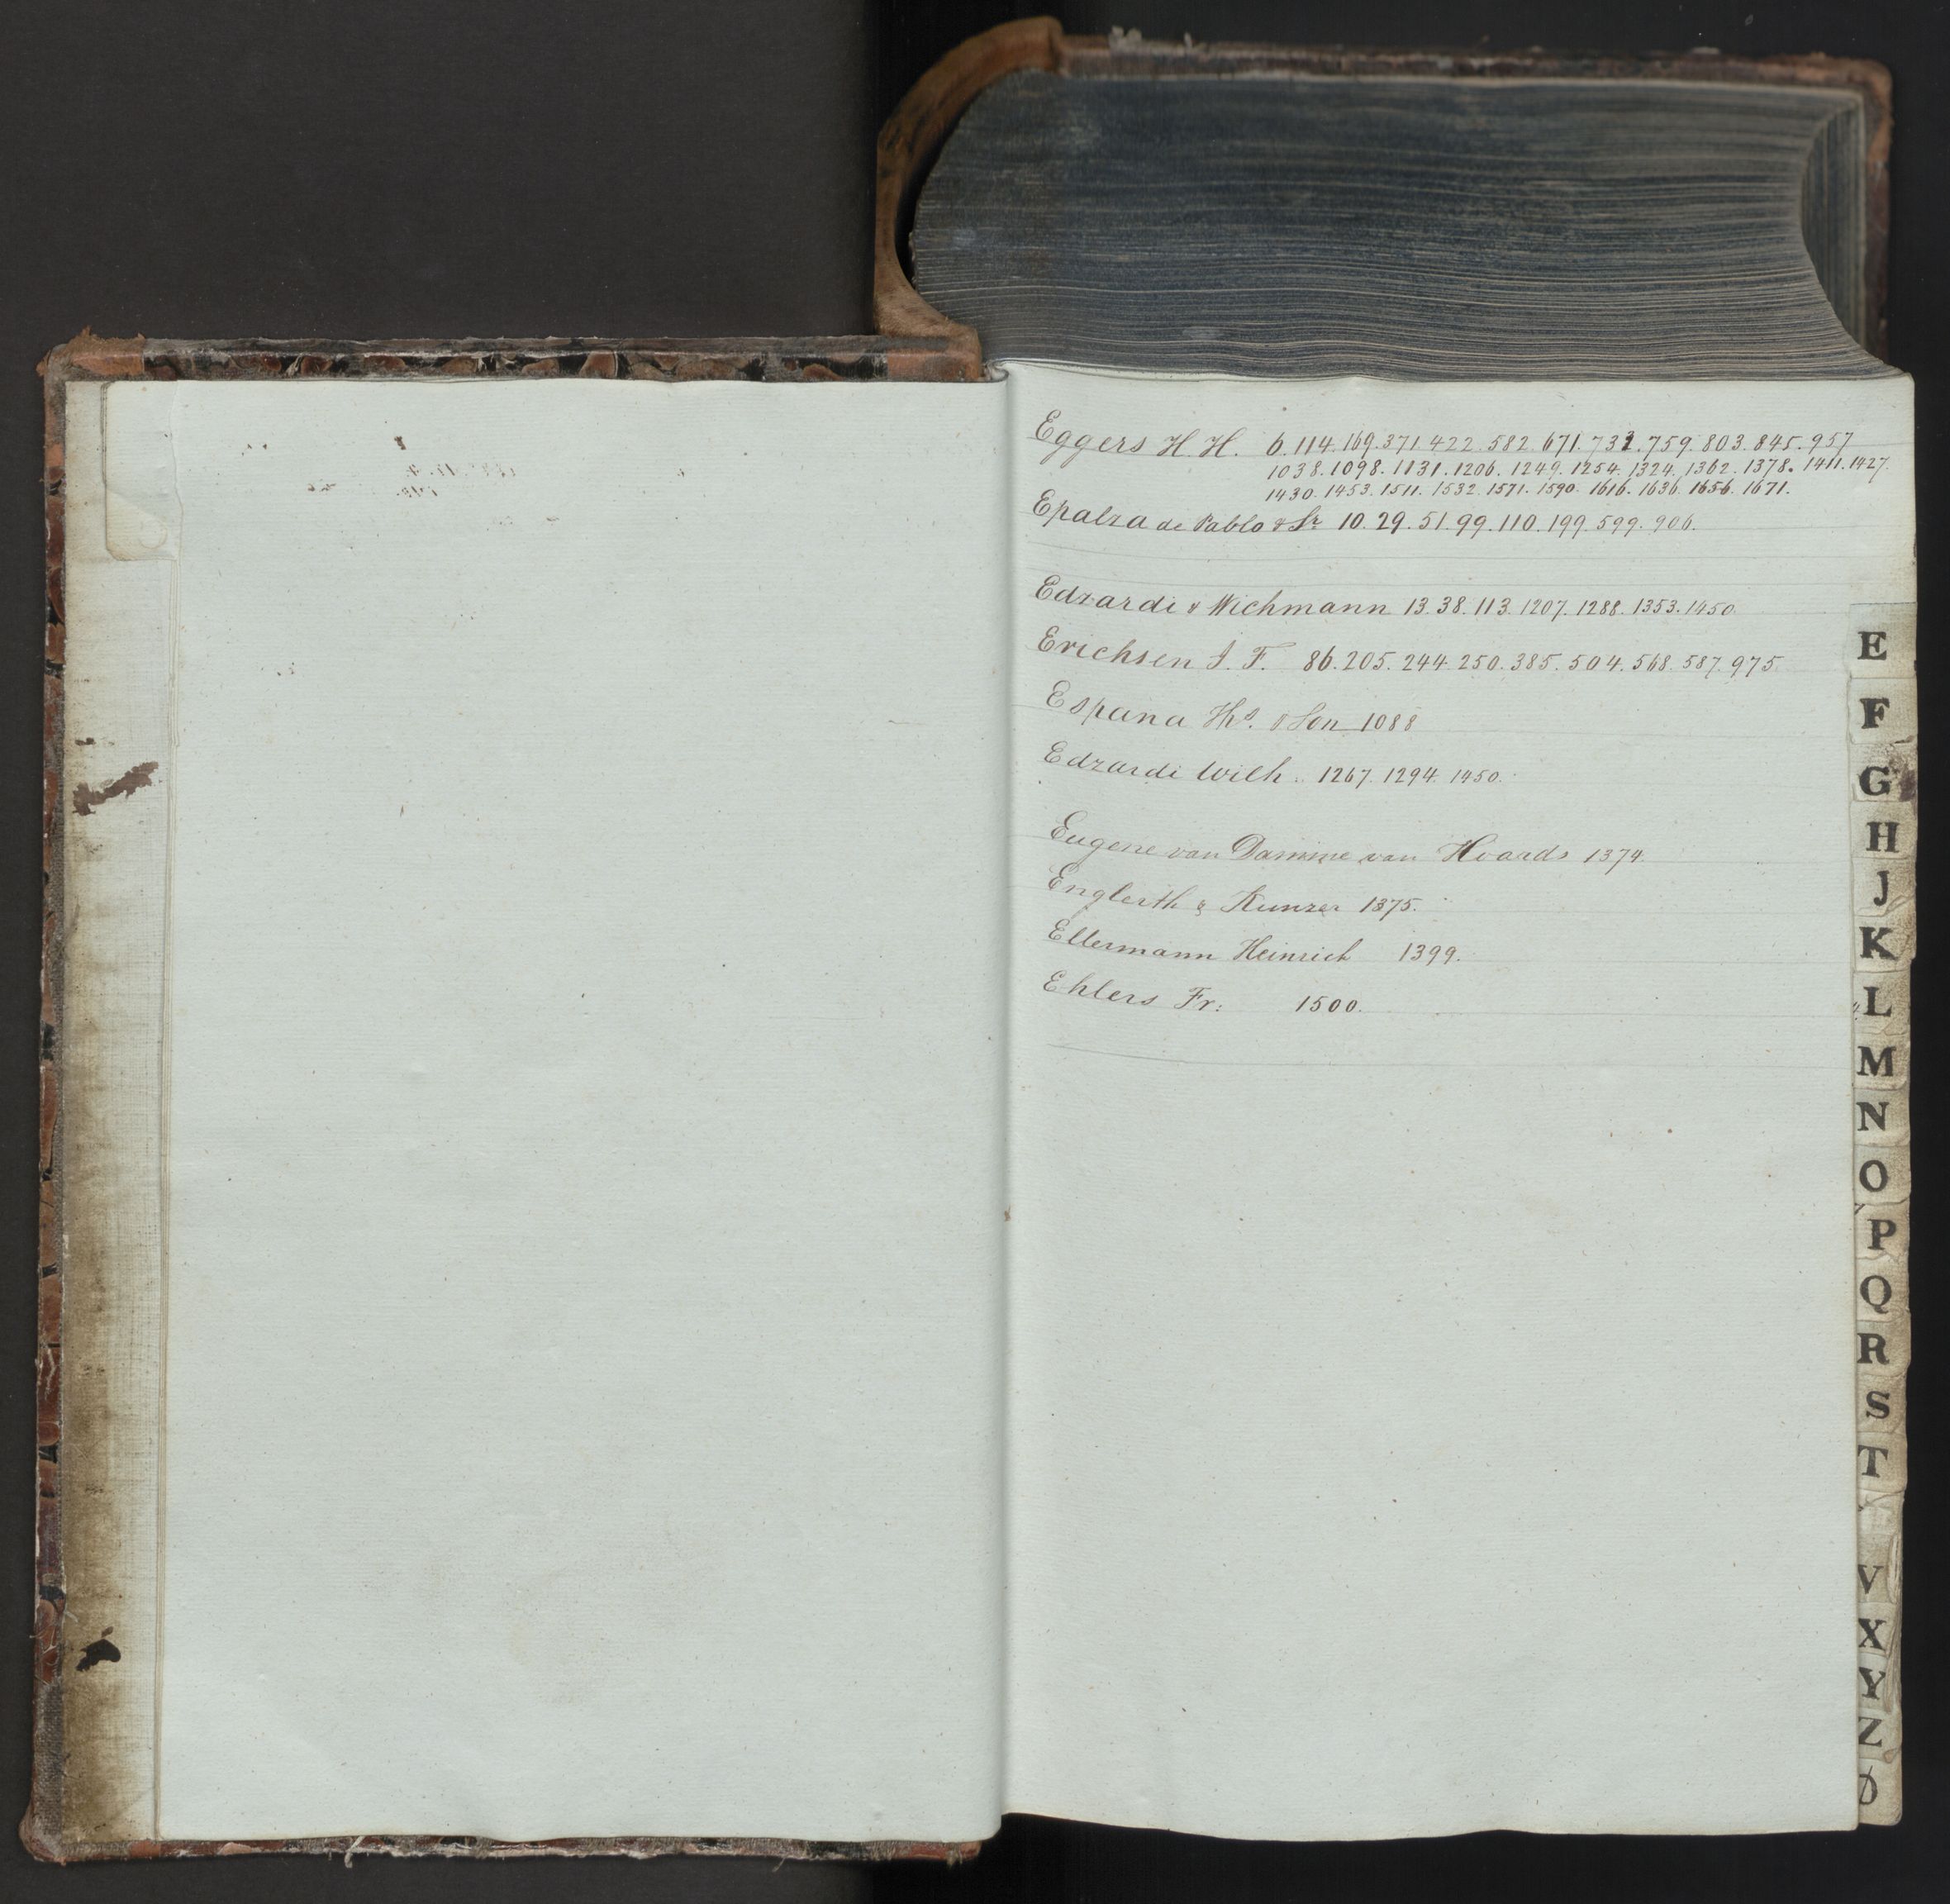 Eggers H. H. 6. 114. 169. 371. 422. 582. 671. 732. 759. 803. 845. 957
1038. 1098. 1131. 1206. 1249. 1254. 1324. 1362. 1378. 1411. 1427.
1430. 1453. 1511. 1532. 1571. 1590. 1616. 1636. 1656. 1671.
Epalza de Pablo & Sr 10. 29. 51. 99. 110. 199. 599. 906.
Edzardi & Wichmann 13. 38. 113. 1207. 1288. 1353. 1450.
Erichsen J. F. 86. 205. 244. 250. 385. 504. 568. 587. 975.
Espana Ths. & Son 1088
Edzardi Wilh. 1267. 1294. 1450.
Eugene van Damme van 1374.
Englerth & Kunzer 1375.
Ellermann Heinrich 1399.
Ehlers Fr: 1500.
E
F
G
H
J
K
L
M
N
O
P
Q
R
S
T
V
X
Y
Z